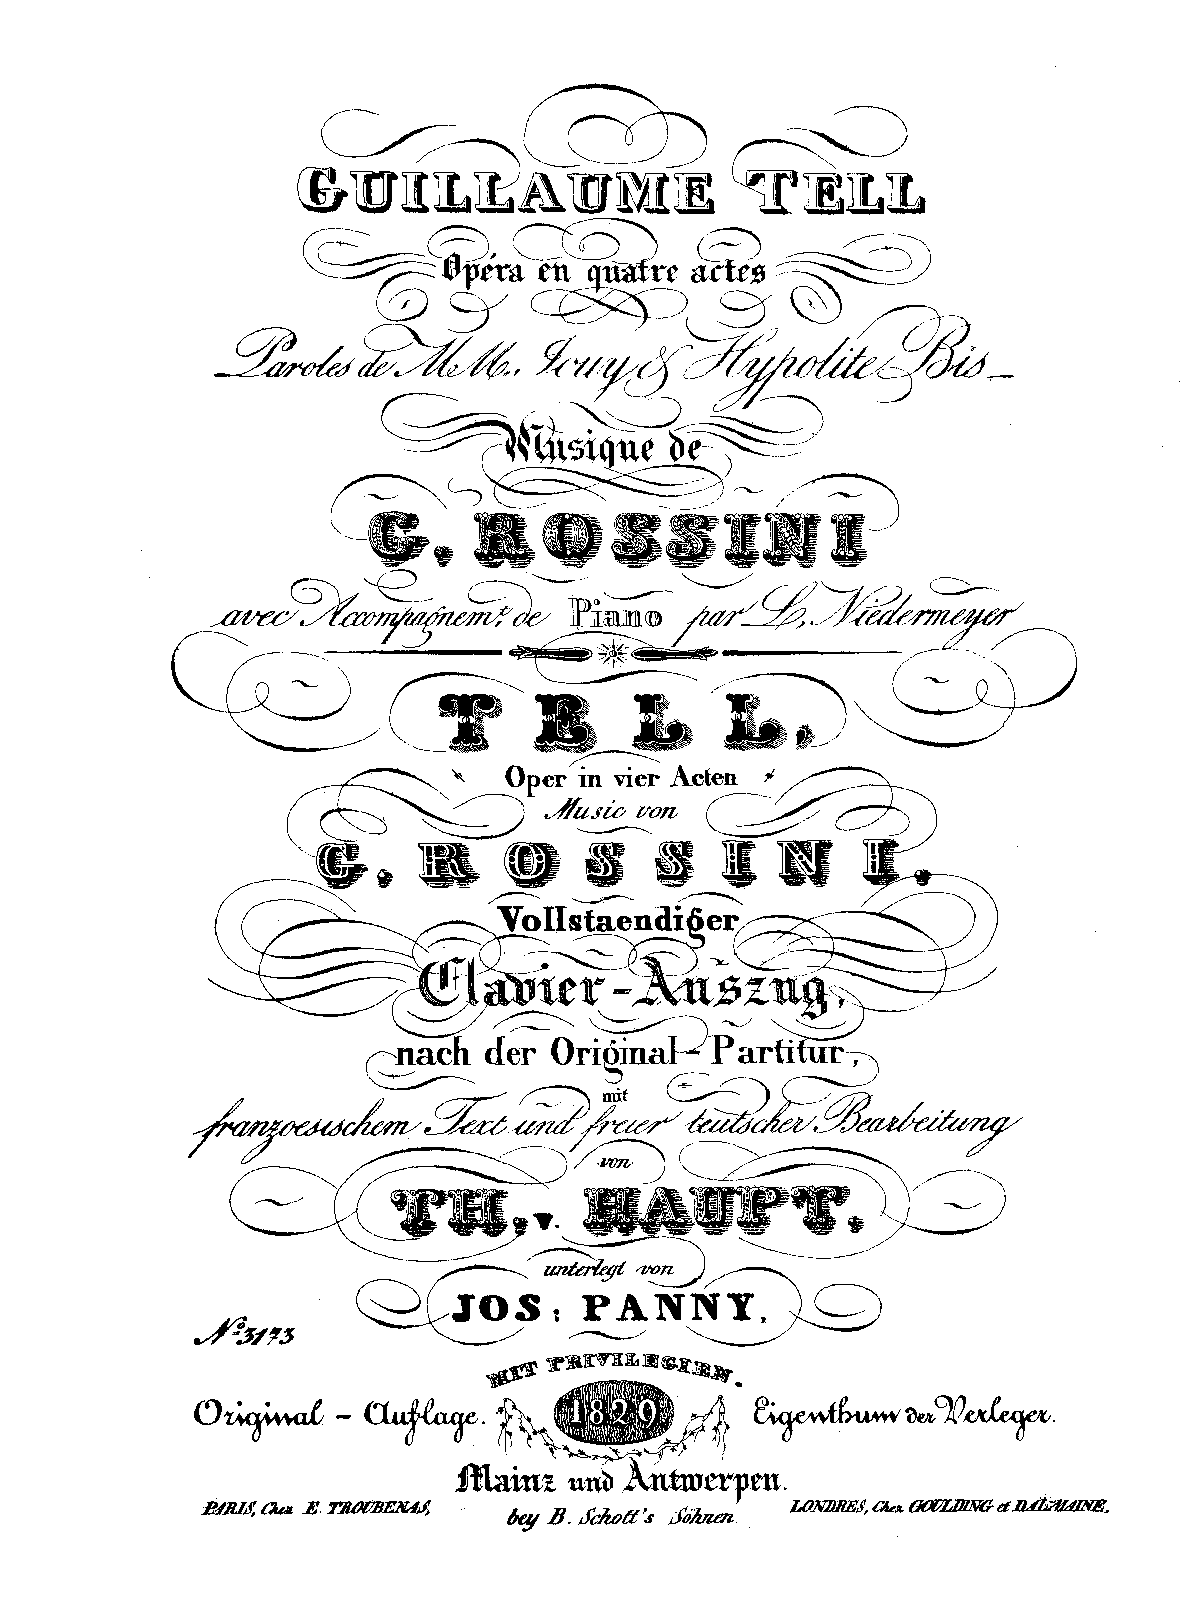 GUILLAUME TELL
Opéra en quatre actes
Paroles de M.M. Jouy & Hypolite Bis
Musique de
G. ROSSINI
avec Accompagnemt. de Piano par L. Niedermeyer
TELL,
Oper in vier Acten
Music von
G. ROSSINI.
Vollstaendiger
Clavier-Auszug,
nach der Original-Partitur,
mit
franzoesischem Text und freier teutscher Bearbeitung
von
TH. v. HAUPT.
unterlegt von
JOS: PANNY.
No. 3173
MIT PRIVILEGIEN.
Original-Auflage. 1829 Eigenthum der Verleger.
Mainz und Antwerpen.
PARIS, Chez E. TROUBENAS, bey B. Schott's Söhnen. LONDRES, Chez GOULDING et DALMAINE.